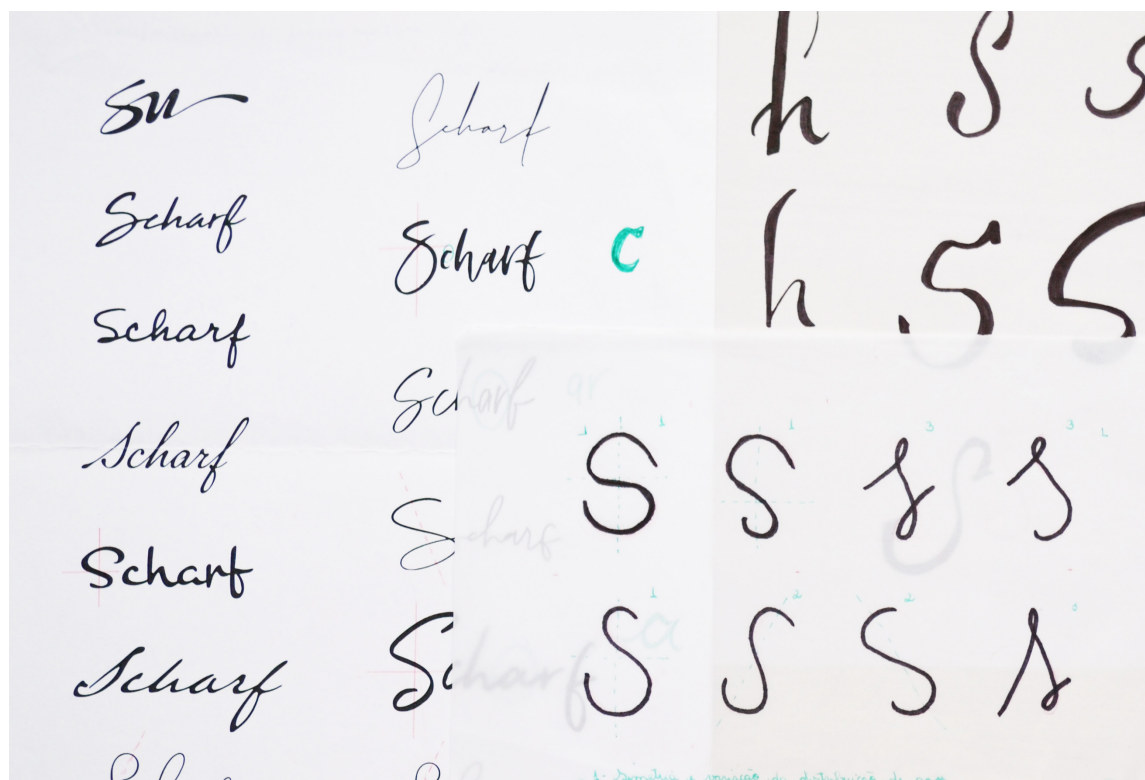 Su
Scharf
Scharf
Scharf
Scharf
Scharf
Scharf
Scharf
C
Scharf
ar
Scharf
Scharf
a
h S S
h S S
1 1 1 3 3 2
S S s s
1 2 2
S S S s